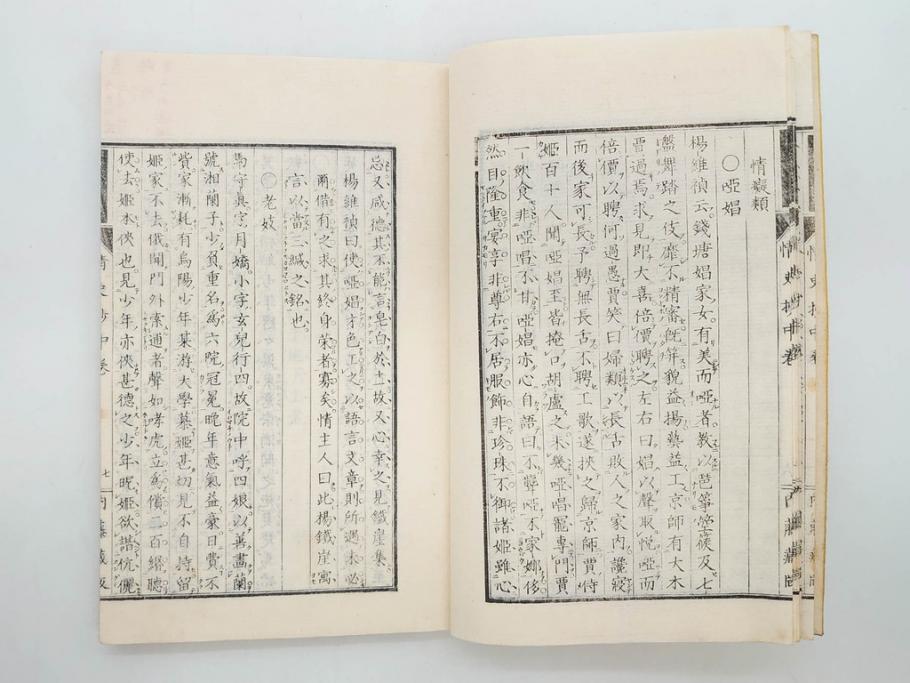 情癡類
〇啞娼
楊維禎云錢塘娼家女有美而啞者教以琵箏箜篌及七
盤舞踏之伎靡不精審既笄貌益揚藝益工京師有大木
賈過焉求見即大喜倍價聘之左右曰娼以聲取悅啞而
倍價以聘何過愚賈笑曰婦類以長舌敗人之家內讒寢
而後家可長予聘無長舌不聘工歌遂挾之歸京師賈侍
姬百十人聞啞娼至皆掩口胡盧之未幾啞唱寵專門賈
一飲食非啞唱不甘啞娼亦心自語曰不聾啞不家娜侈
然目隆重宴享非尊右不居服飾非珍珠不御諸姬雖心
忌又咸德其不能言皂白於上故又心幸之見鐵崖集
楊維禎曰使啞娼才色工之以語言文章則所遇未必
爾備有之求其終身榮者寡矣情主人曰此楊鐵崖寓
言以當三緘之銘也
〇老妓
馬守真字月嬌小字玄兒行四故院中呼四娘以善畫蘭
號湘蘭子少負重名為六院冠冕晚年意氣益豪日費不
貲家漸耗有烏陽少年某游大學慕姬甚切見不自持留
姬家不去俄聞門外索逋者聲如哮虎立為償三百緡聽
使去姬本俠也見少年亦俠甚德之少年昵姬欲諧伉儷
情史抄中卷
情史抄中卷
七